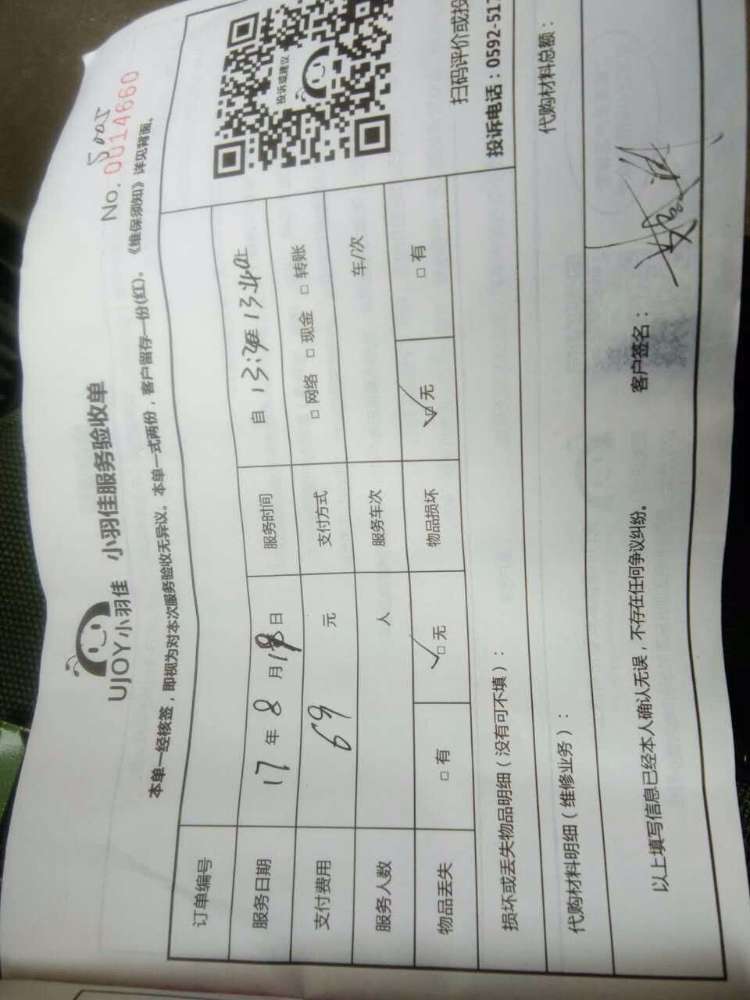 UJOY小羽佳 小羽佳服务验收单 No. 0014660
5005
本单一经核签，即视为对本次服务验收无异议。本单一式两份，客户留存一份(红)。《维保须知》详见背面。
订单编号
服务日期 17 年 8 月 18 日 服务时间 自 13:30至 13:40止
支付费用 69 元 支付方式 □ 网络 □ 现金 □ 转账
服务人数 人 服务车次 车/次
物品丢失 □ 有 ☑ 无 物品损坏 ☑ 无 □ 有
投诉或建议
扫码评价或投
投诉电话：0592-517
损坏或丢失物品明细（没有可不填）：
代购材料明细（维修业务）： 代购材料总额：
以上填写信息已经本人确认无误，不存在任何争议纠纷。 客户签名：